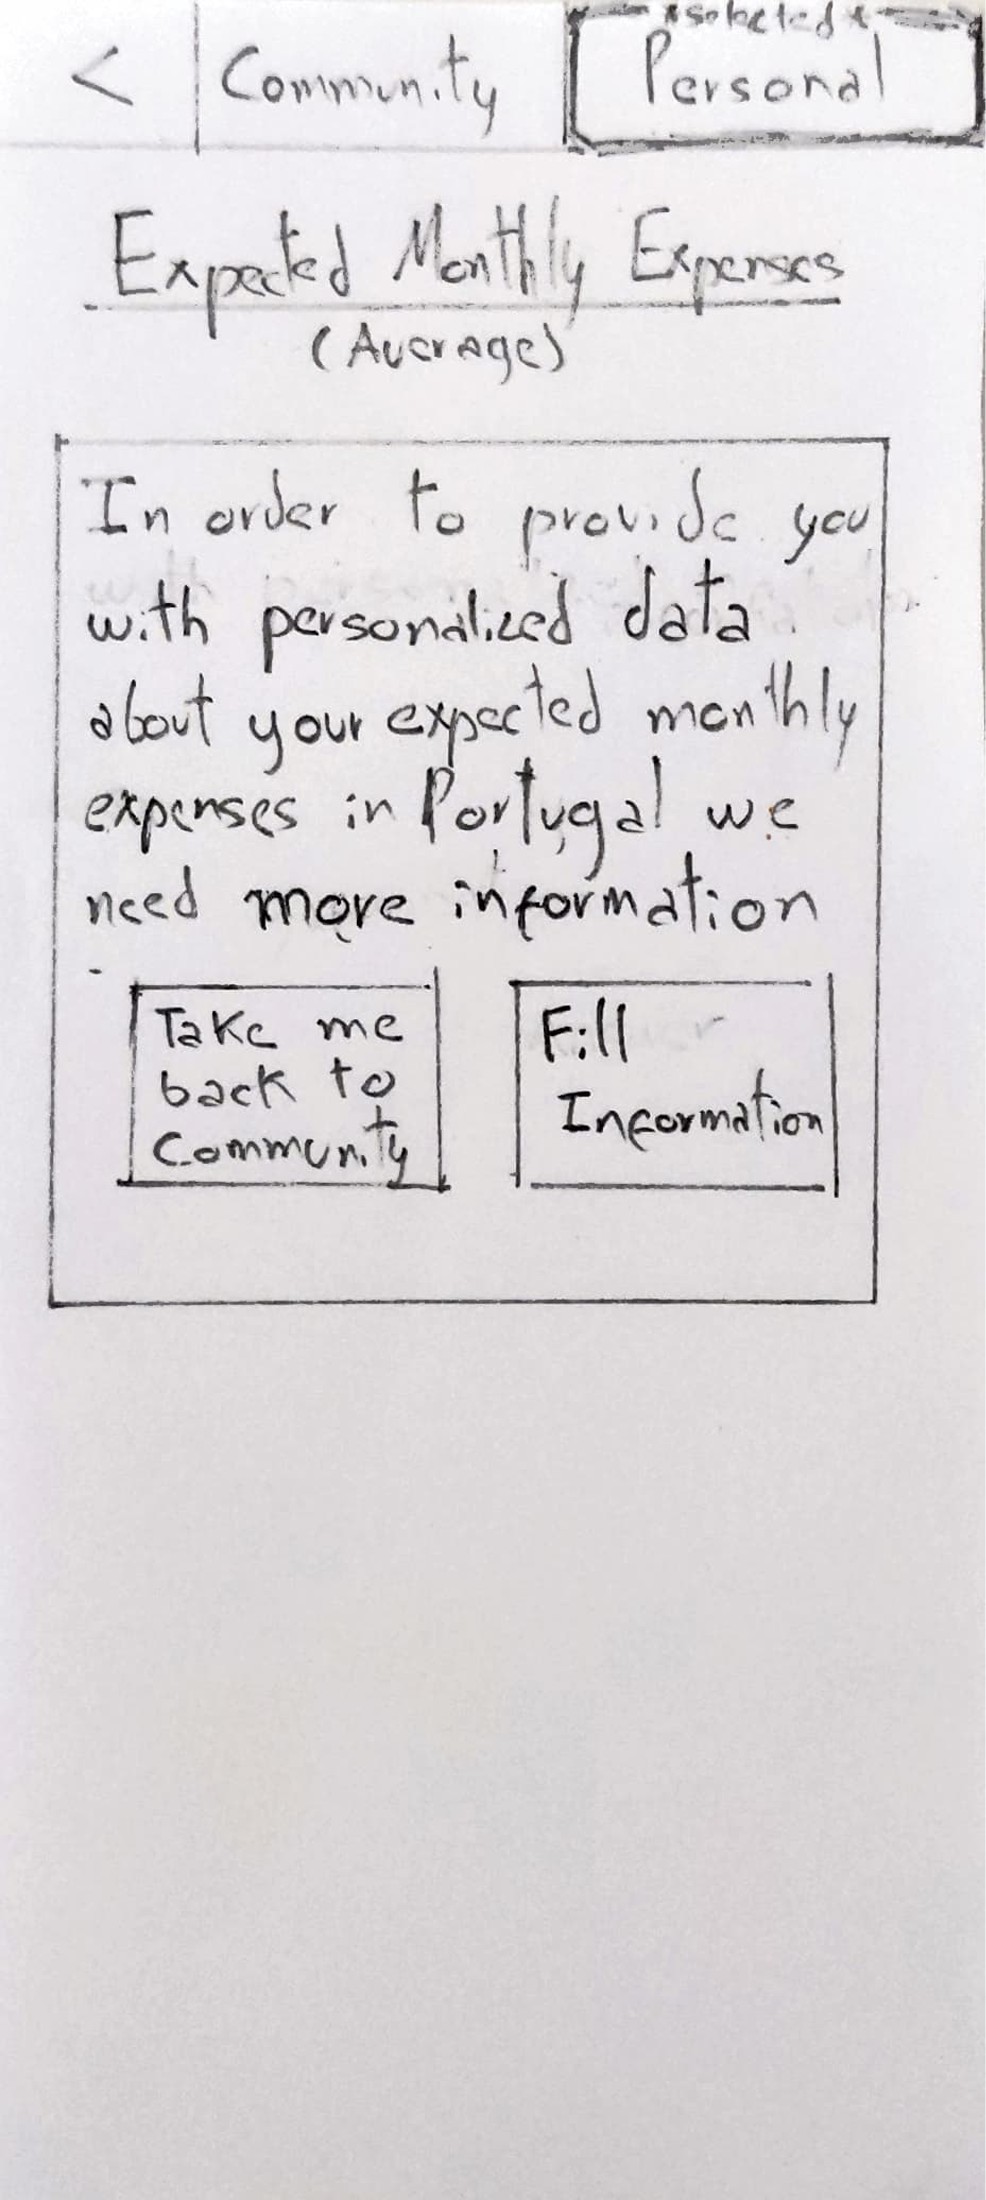 *selected*
< Community Personal
Expected Monthly Expenses
(Average)
In order to provide you
with personalized data
about your expected monthly
expenses in Portugal we
need more information
Take me
back to
Community
Fill
Information